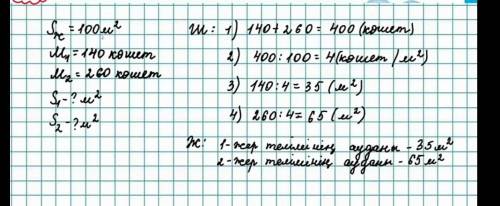 Sж = 100 м²
M₁ = 140 көшет
M₂ = 260 көшет
S₁ - ? м²
S₂ - ? м²
Ш: 1) 140 + 260 = 400 (көшет)
2) 400 : 100 = 4 (көшет / м²)
3) 140 : 4 = 35 (м²)
4) 260 : 4 = 65 (м²)
Ж: 1-жер телімінің ауданы - 35 м²
2-жер телімінің ауданы - 65 м²